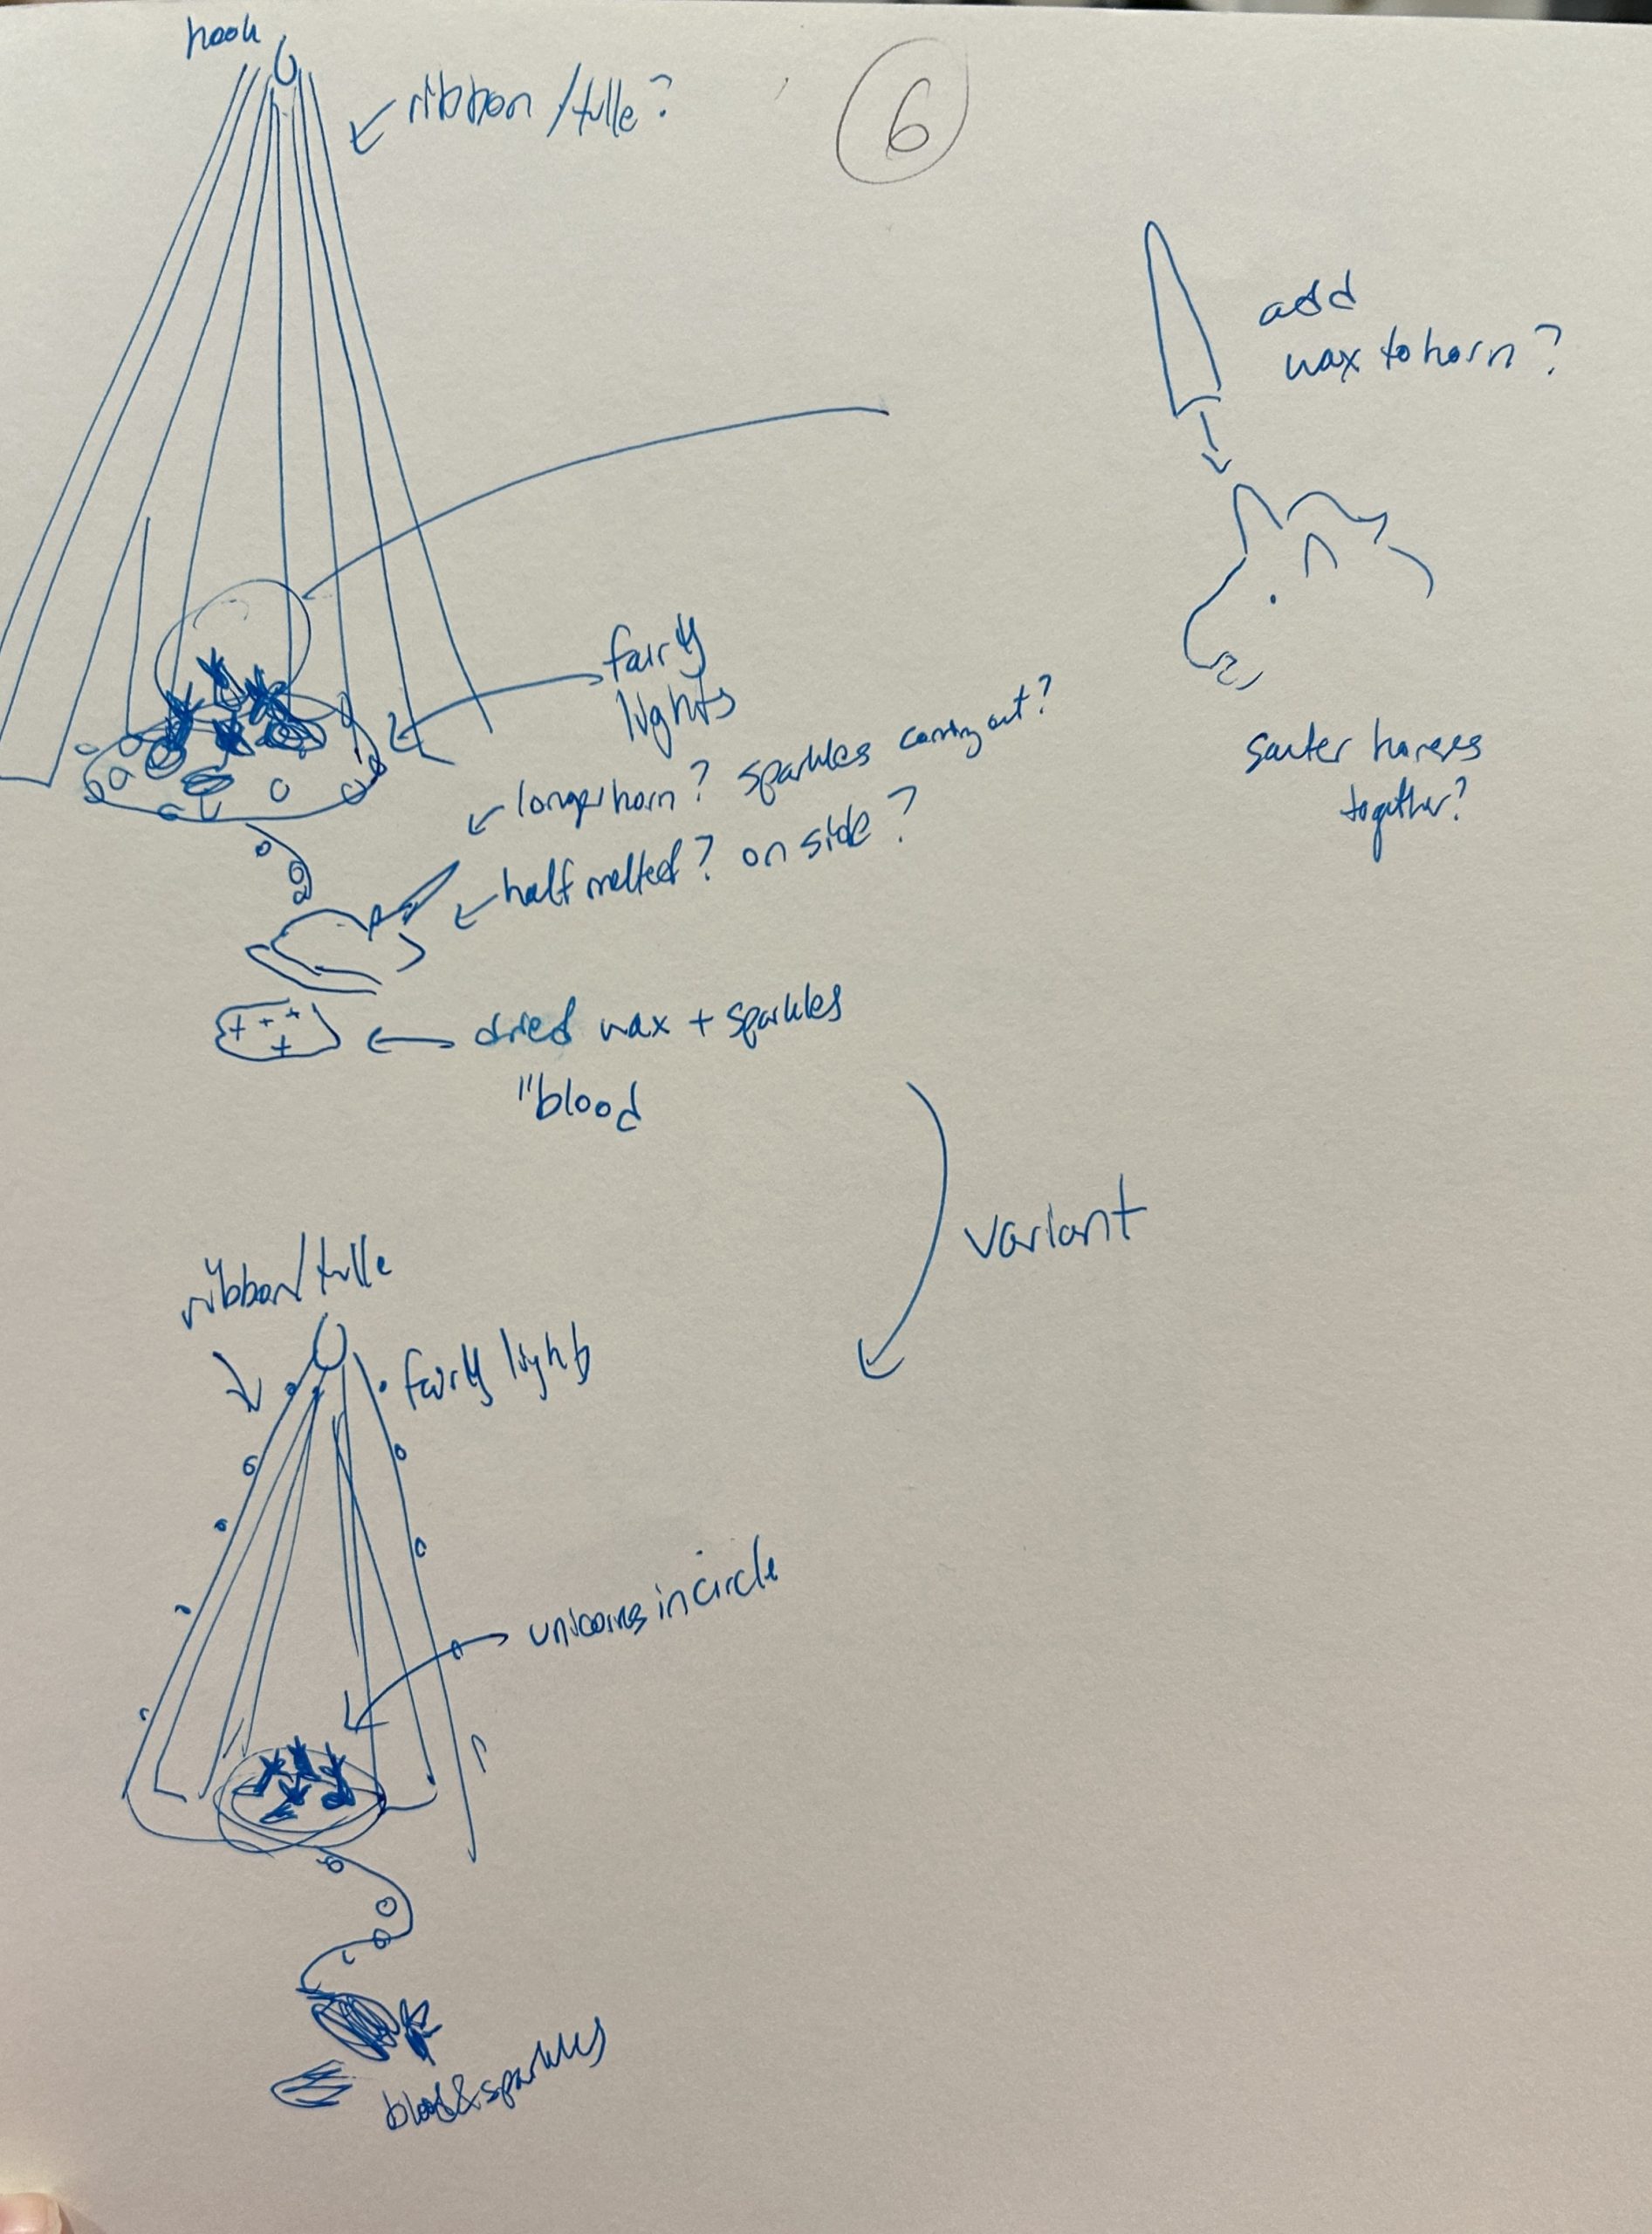 hook
ribbon/tulle?
6
add
wax to horn?
fairy
lights
longer horn? sparkles coming out?
half melted? on side?
together?
dried wax + sparkles
"blood
variant
ribbon/tulle
fairy lights
unicorns in circle
blood & sparkles